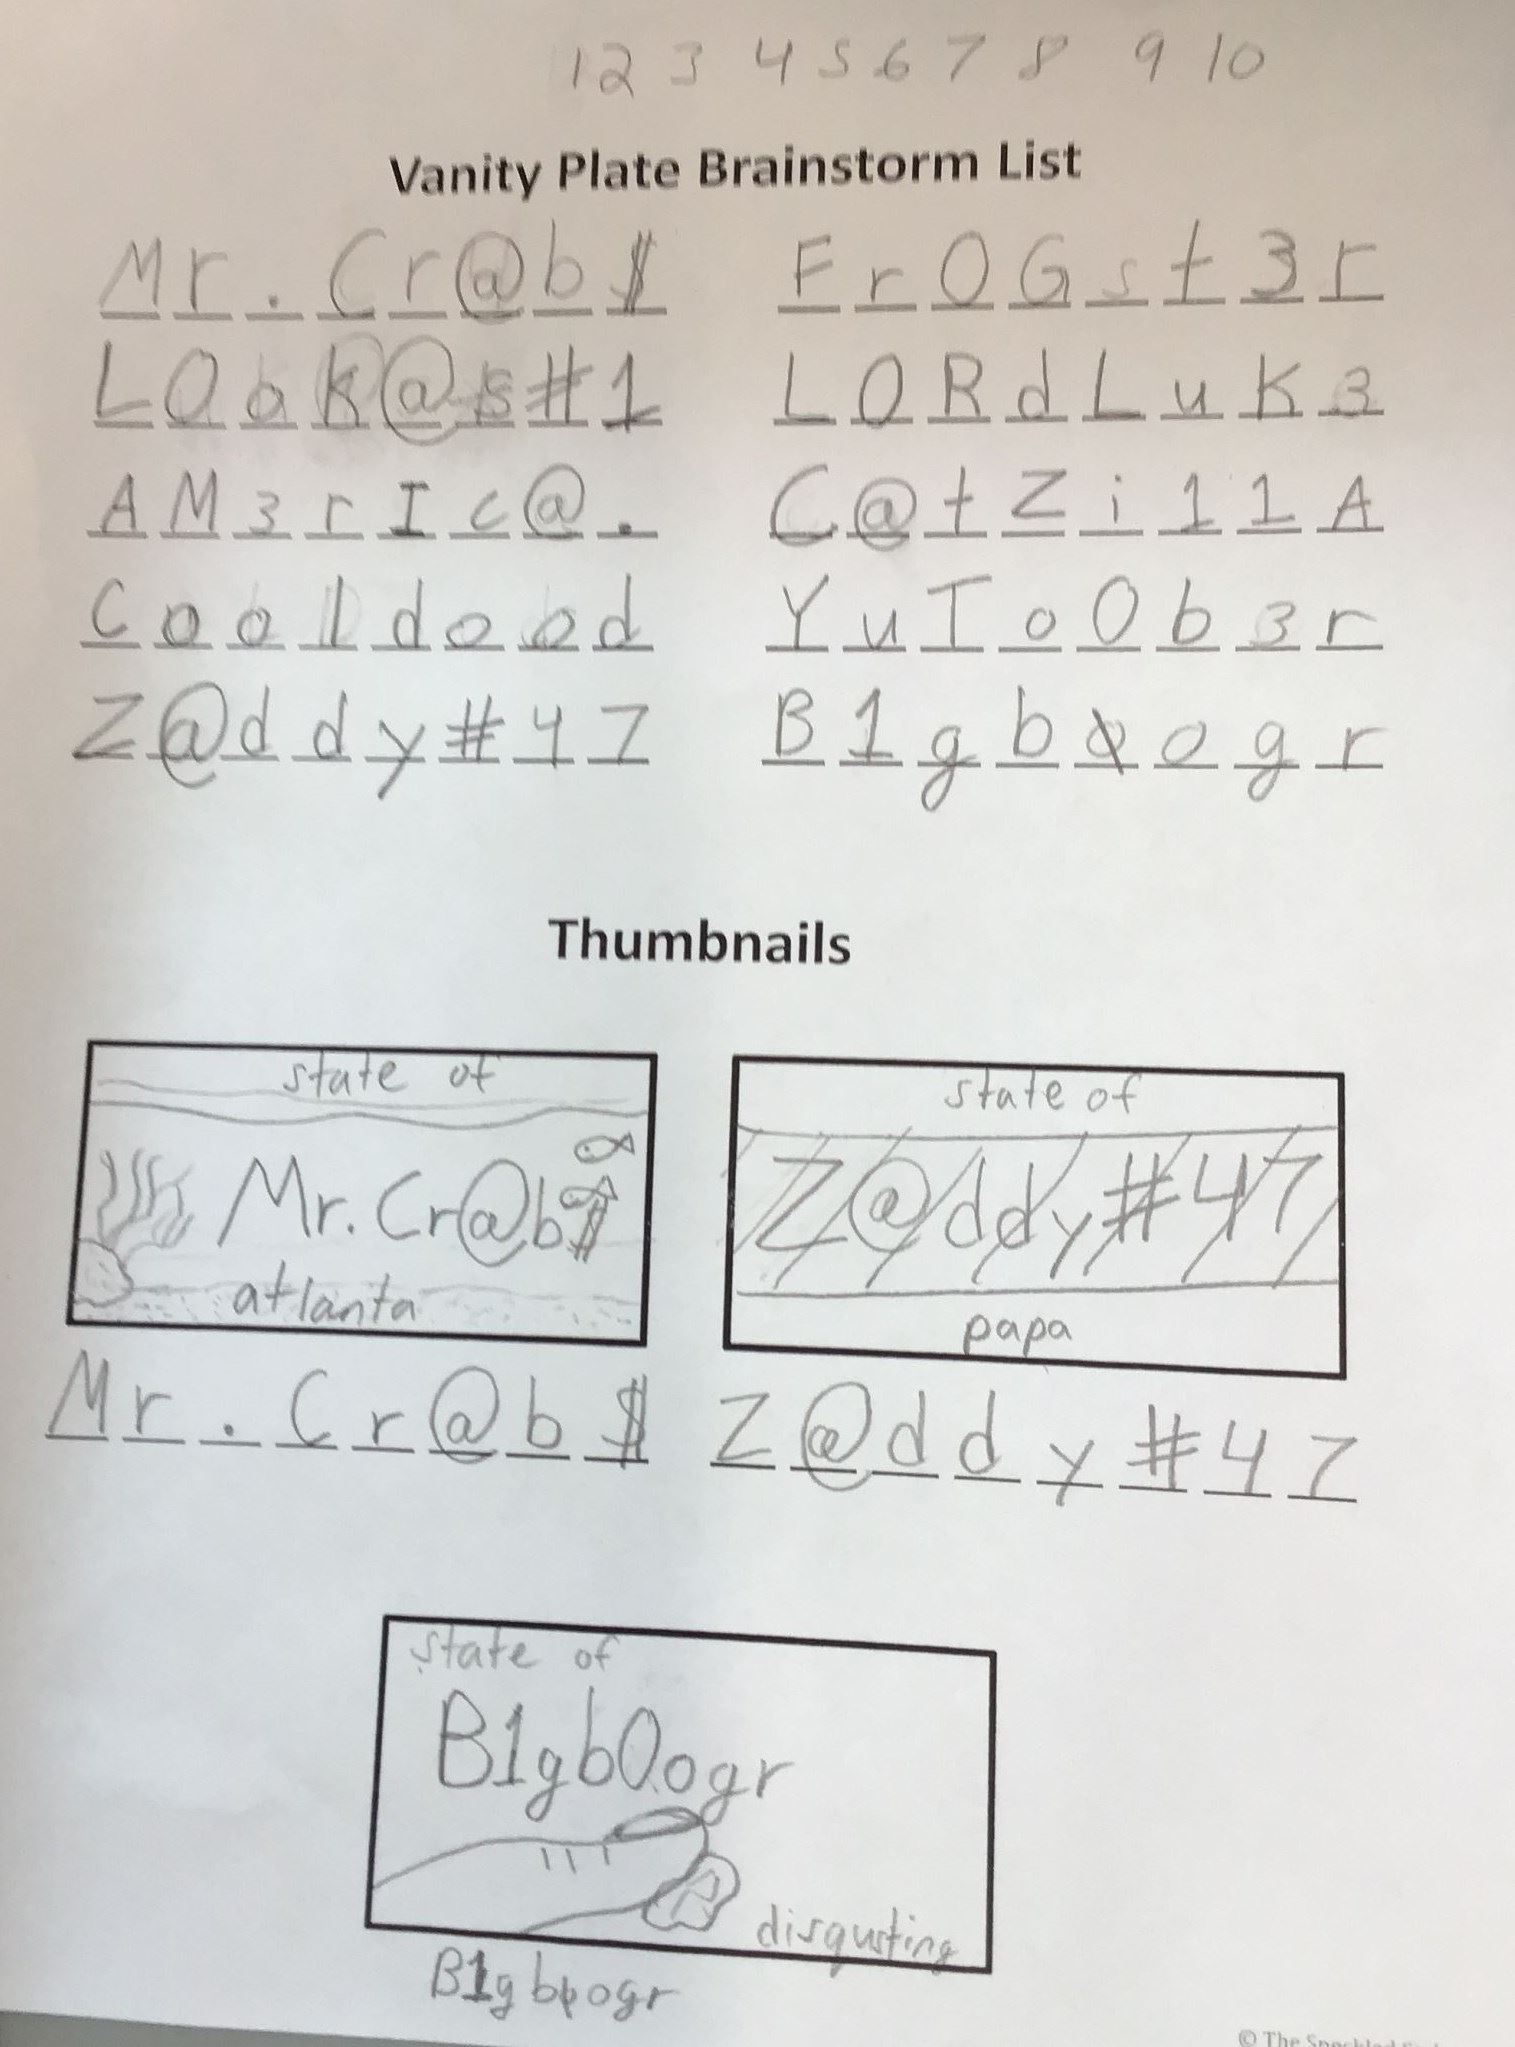 1 2 3 4 5 6 7 8 9 10
Vanity Plate Brainstorm List
Mr.Cr@b$ FrOGst3r
LOok@s#1 LORdLuK3
AM3rIc@. C@tZi11A
Cooldood YuToOb3r
Z@ddy#47 B1gb0ogr
Thumbnails
state of
Mr.Cr@b$
atlanta
Mr.Cr@b$
state of
Z@ddy#47
papa
Z@ddy#47
state of
B1gb0ogr
disgusting
B1gb0ogr
© The